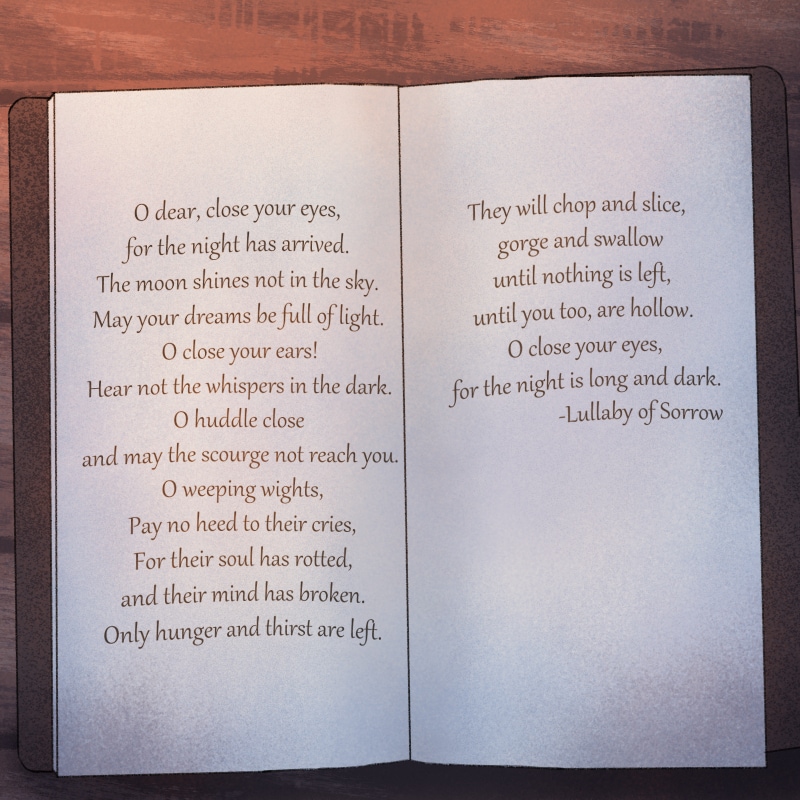 O dear, close your eyes,
for the night has arrived.
The moon shines not in the sky.
May your dreams be full of light.
O close your ears!
Hear not the whispers in the dark.
O huddle close
and may the scourge not reach you.
O weeping wights,
Pay no heed to their cries,
For their soul has rotted,
and their mind has broken.
Only hunger and thirst are left.
They will chop and slice,
gorge and swallow
until nothing is left,
until you too, are hollow.
O close your eyes,
for the night is long and dark.
-Lullaby of Sorrow